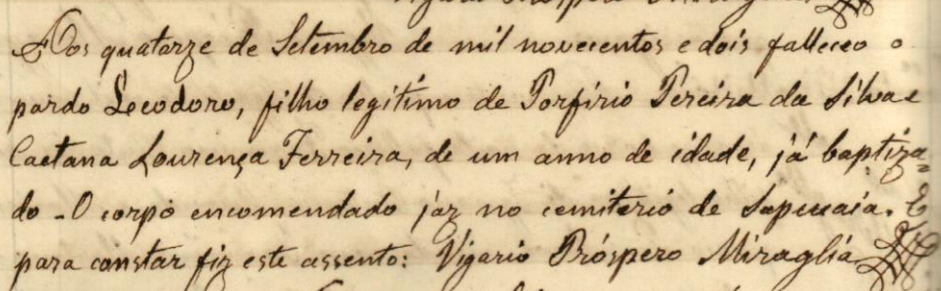 Aos quatorze de Setembro de mil novecentos e dois falleceo o
pardo Leodoro, filho legitimo de Porfirio Pereira da Silva e
Caetana Lourença Ferreira, de um anno de idade, já baptiza=
do - O corpo encomendado jaz no cemiterio de Sapucaia. E
para constar fiz este assento: Vigario Próspero Miraglia